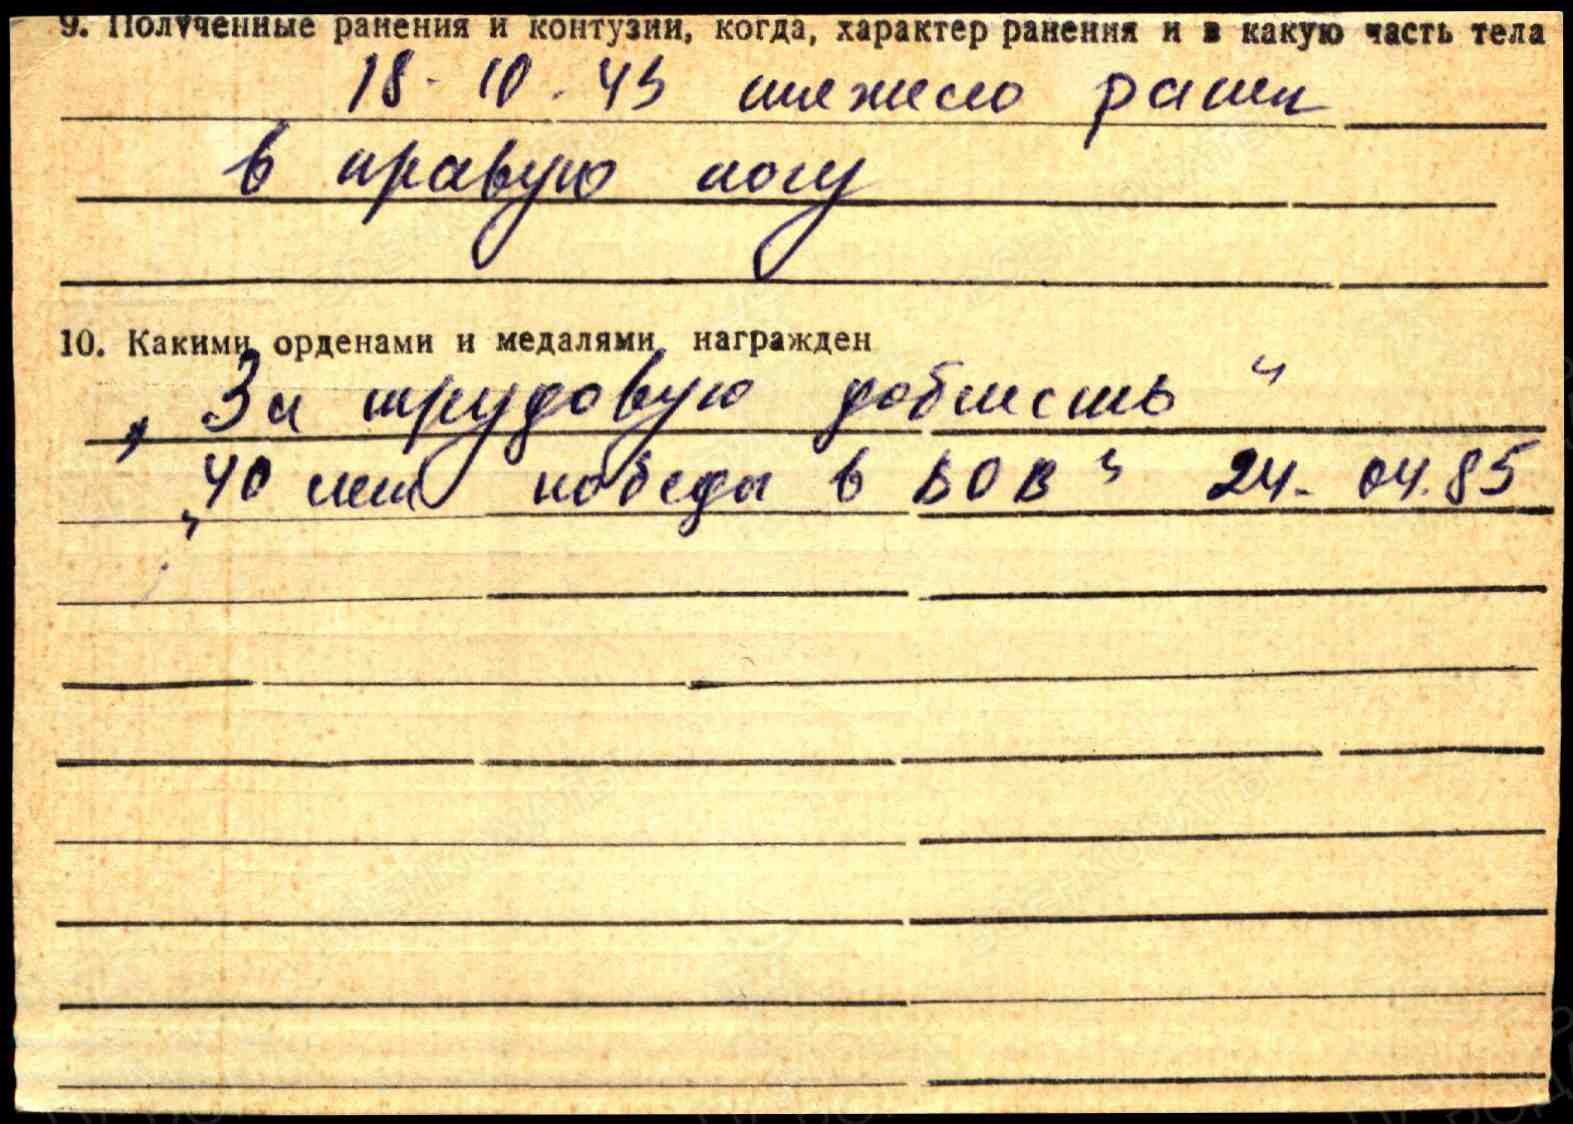 9. Полученные ранения и контузии, когда, характер ранения и в какую часть тела
18-10.43 тяжело ранен
в правую ногу
10. Какими орденами и медалями награжден
„За трудовую доблесть"
„40 лет победы в ВОВ" 24.04.85